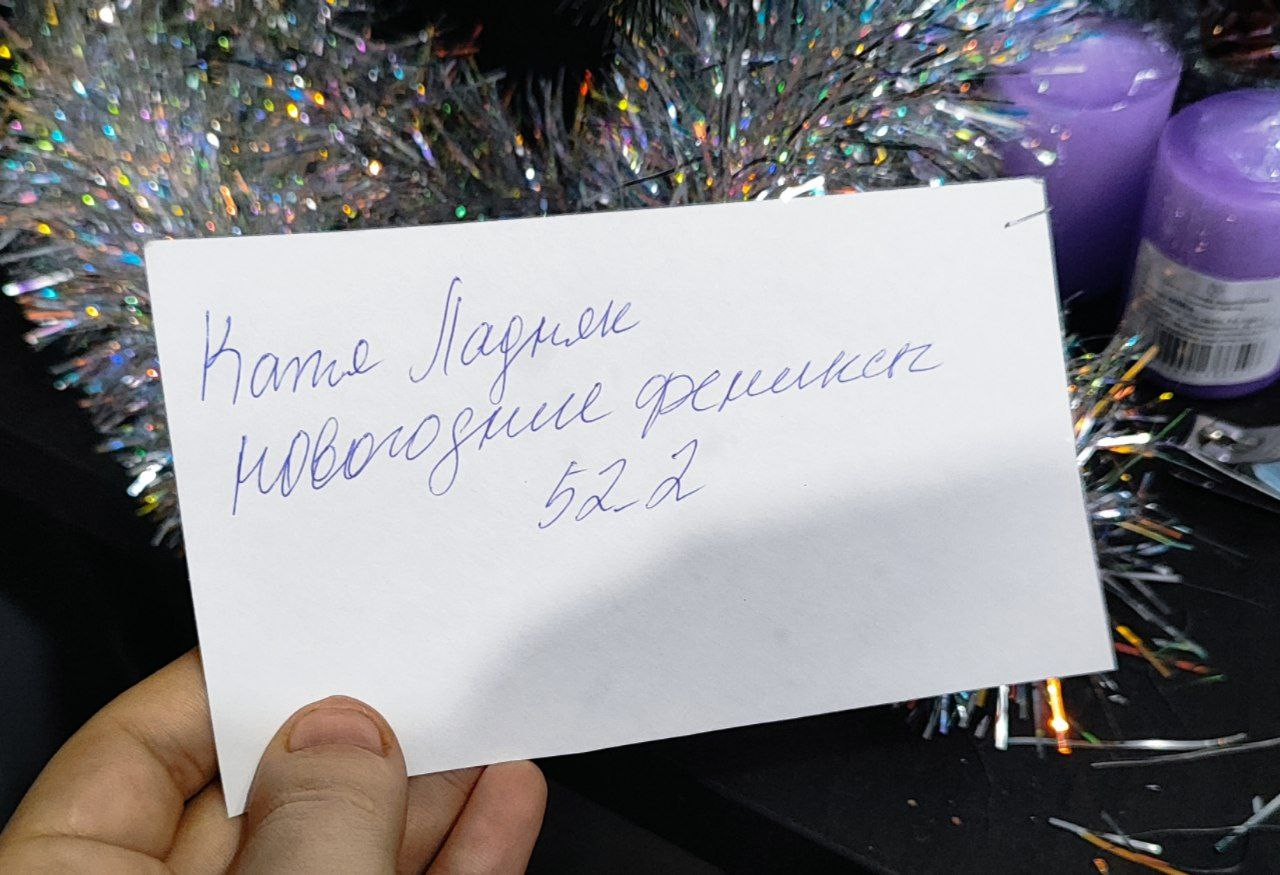 Катя Ладняк
новогодние фениксы
52-2